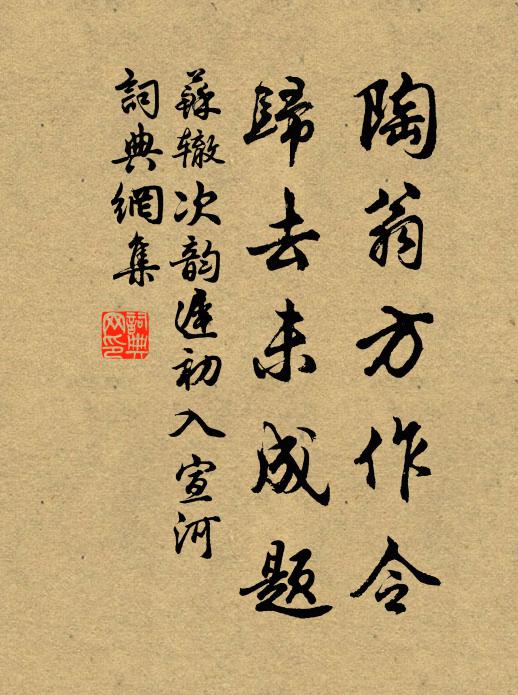 陶翁方作令
歸去未成題
蘇辙次韵遲初入宣河
詞典網集
詞典网印